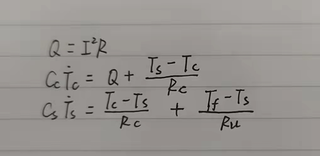 Q = I²R
C_c Ṫ_c = Q + (T_s − T_c)/R_c
C_s Ṫ_s = (T_c − T_s)/R_c + (T_f − T_s)/R_u